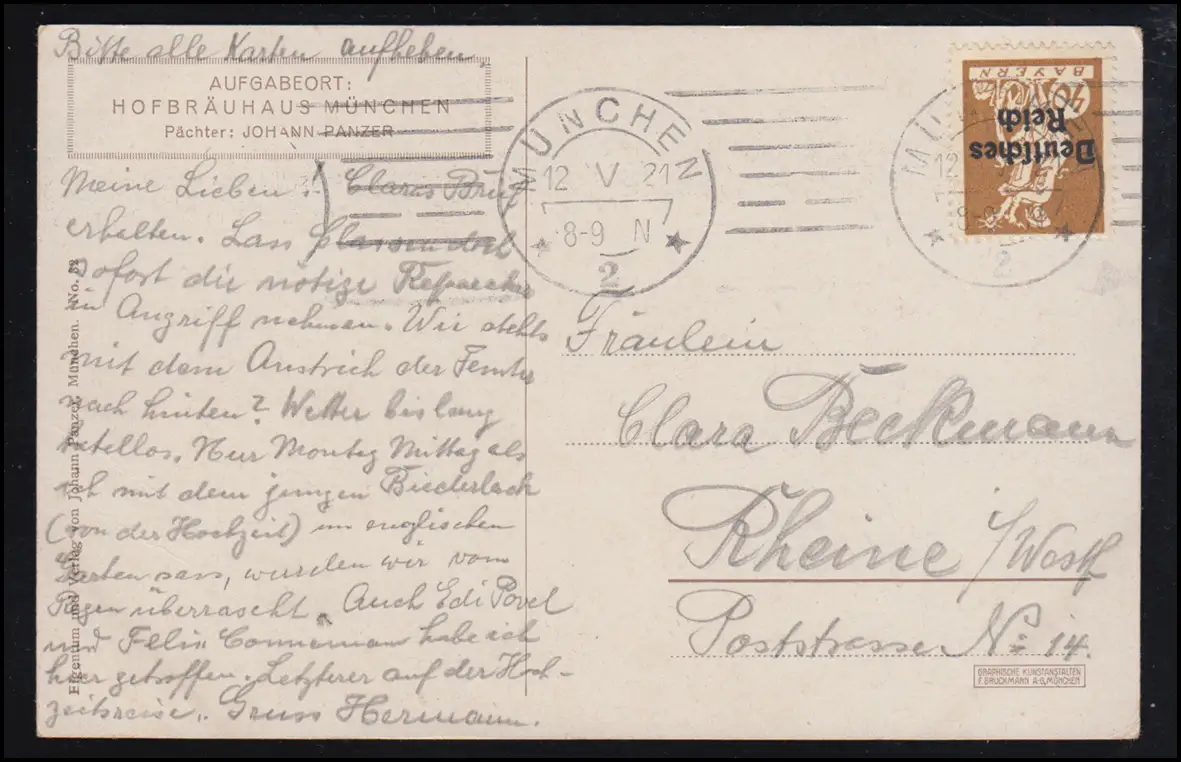 Bitte alle Karten aufheben.
AUFGABEORT:
HOFBRÄUHAUS MÜNCHEN
Pächter: JOHANN PANZER
Meine Lieben! Claras Brief
erhalten. Lass
sofort die nötige Reparatur
in Angriff nehmen. Wir stehts
mit dem Anstrich der Fenster
nach hinten? Wetter bislang
tadellos. Nur Montag Mittag als
ich mit dem jungen Biederlack
(von der Hochzeit) im englischen
Garten sass, wurden wir vom
Regen überrascht. Auch Edi Povel
und Felix Connemann habe ich
hier getroffen. auf der Hoch-
zeitsreise. Gruss Hermann.
Eigentum und Verlag von Johann Panzer, München. No. 32
MÜNCHEN
12 V 21
8-9 N
2
MÜNCHEN
12
8-9
2
BAYERN
Deutsches
Reich
Fräulein
Clara Beckmann
Rheine i/Westf
Poststrasse No 14.
GRAPHISCHE KUNSTANSTALTEN
F. BRUCKMANN A-G, MÜNCHEN